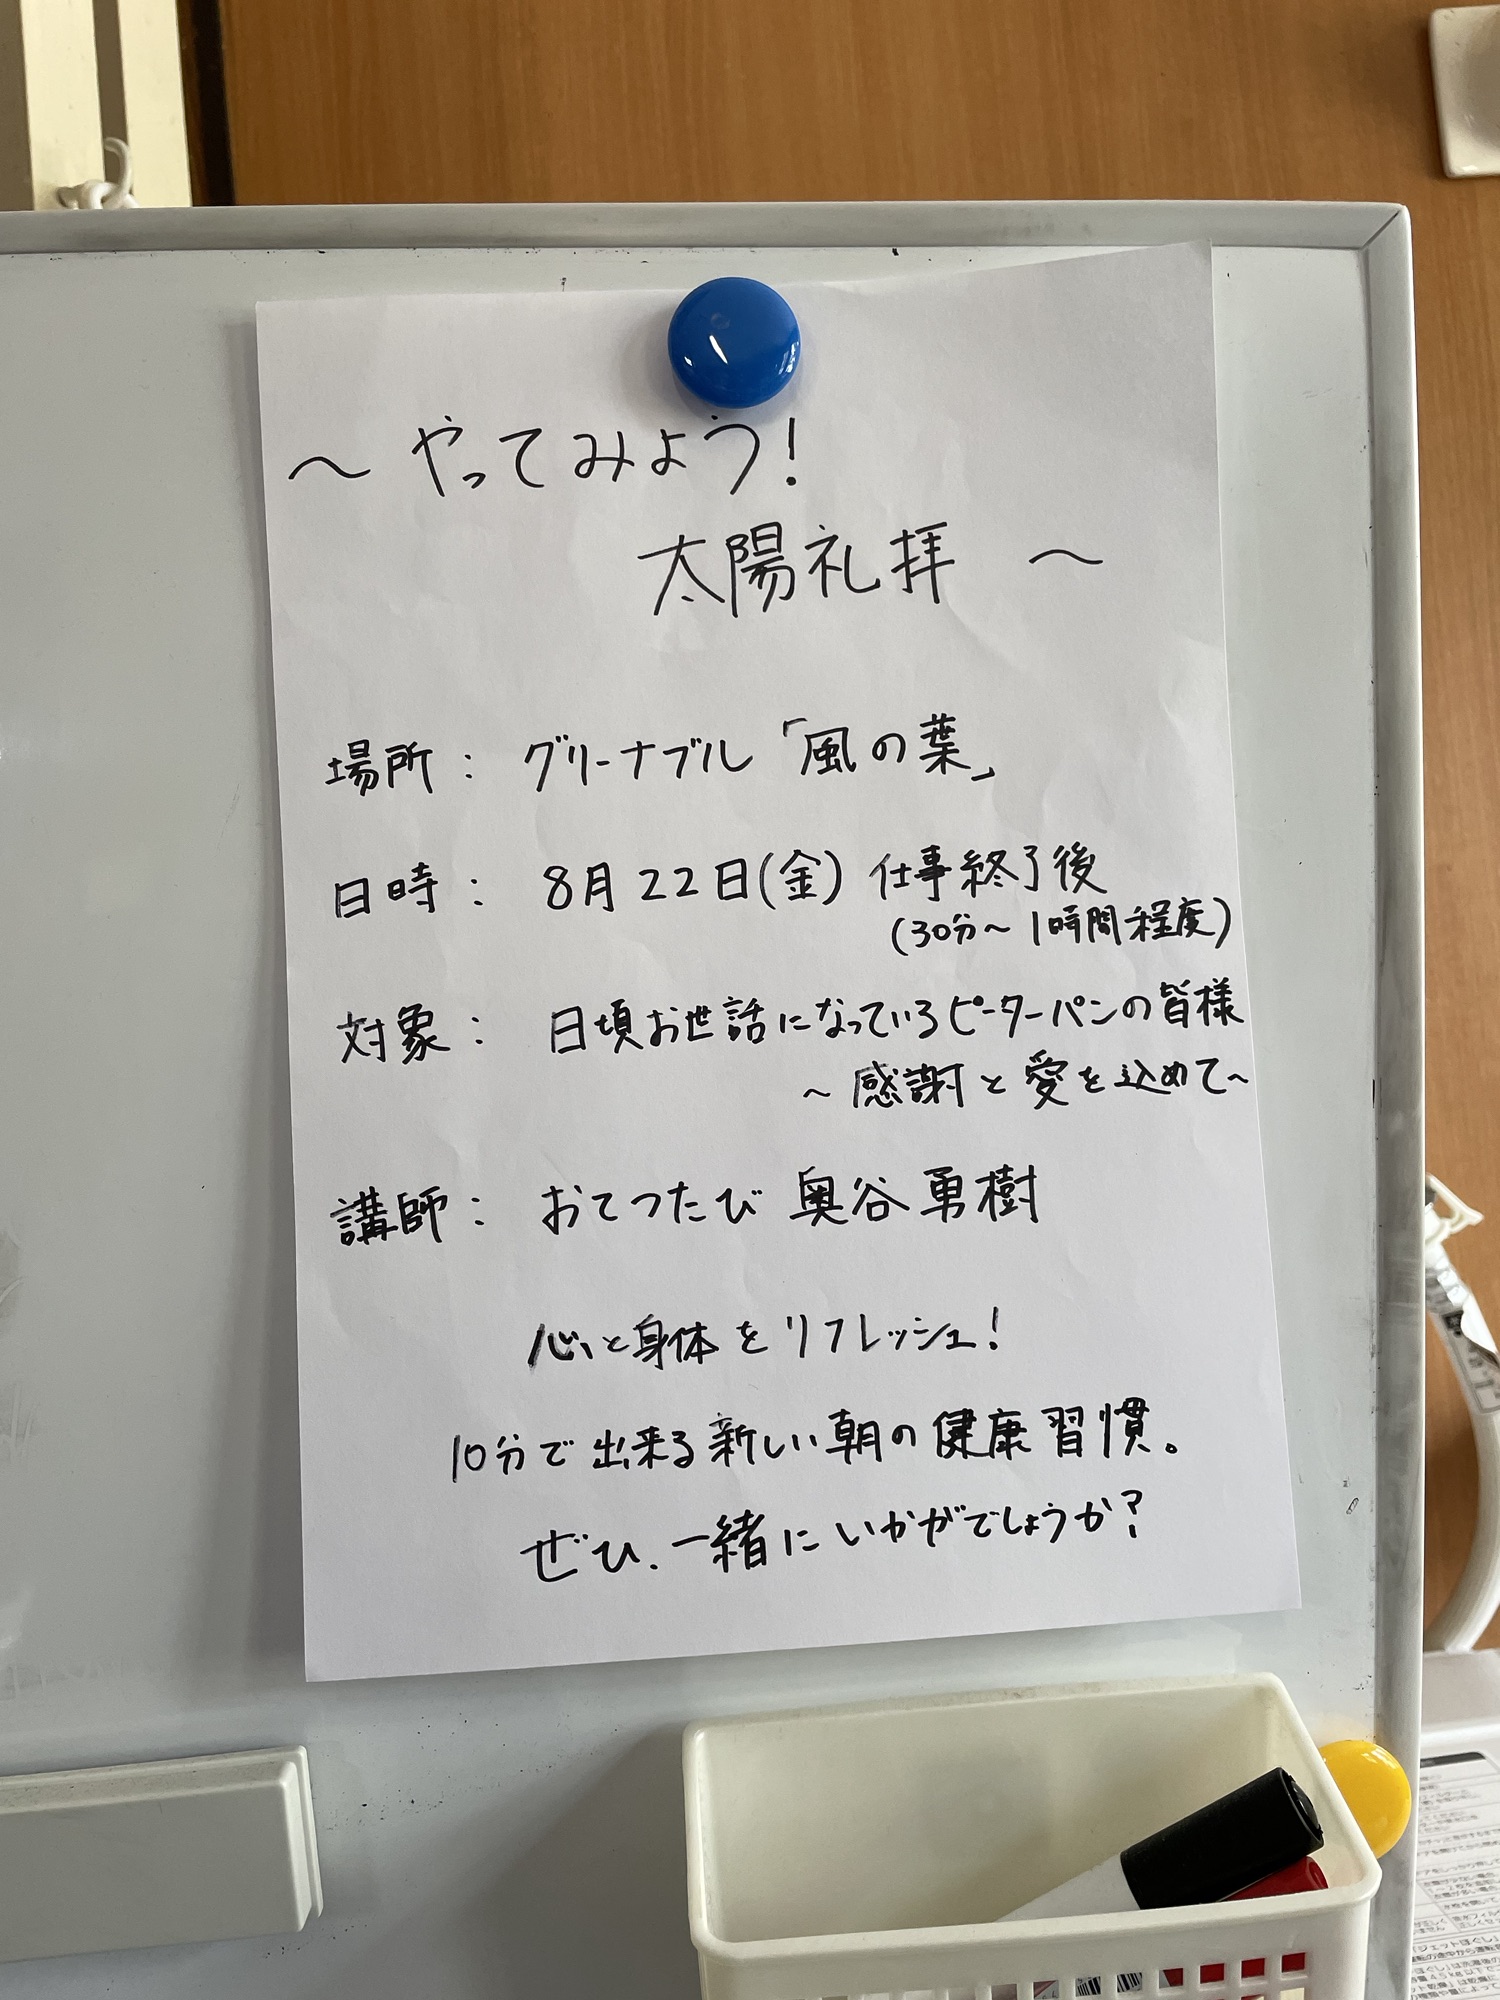 ～ やってみよう!
太陽礼拝 ～
場所： グリーナブル「風の葉」
日時： 8月22日(金) 仕事終了後
(30分～1時間程度)
対象： 日頃お世話になっているピーターパンの皆様
～感謝と愛を込めて～
講師： おてつたび 奥谷勇樹
心と身体をリフレッシュ!
10分で出来る新しい朝の健康習慣。
ぜひ、一緒にいかがでしょうか?